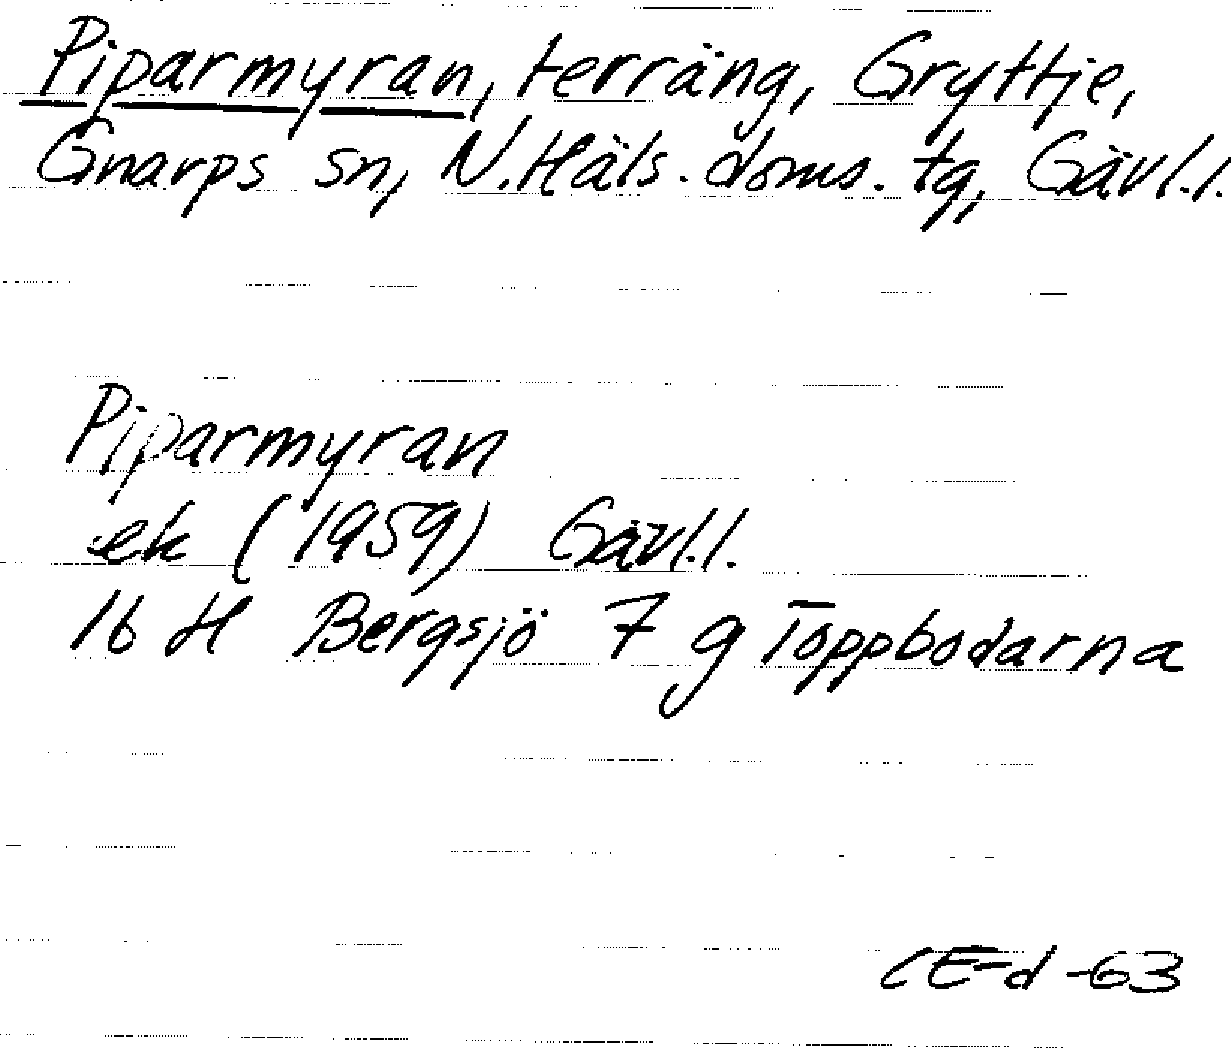 Piparmyran, terräng, Gryttje,
Gnarps sn, N.Häls. doms. tg, Gävl.l.
Piparmyran
ek (1959) Gävl.l.
16 H Bergsjö 7 g Toppbodarna
CE-d -63